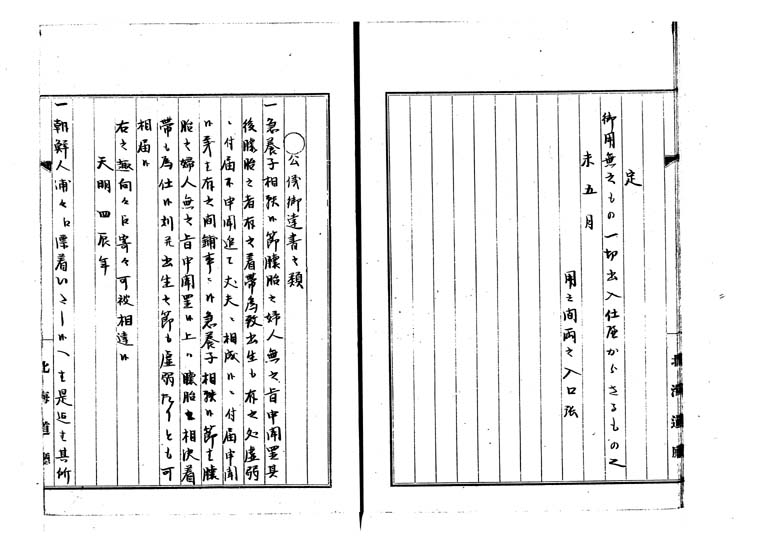 定
御用無之もの一切出入仕間からさるもの之
未五月
用之間両之入口張
北海道廳
〇公儀御達書之類
一急養子相願候節懐胎之婦人無之旨申聞置其
後懐胎之者有之着帯為致出生も有之処虚弱
付届不申聞追て丈夫ニ相成候ハ付届申聞
候事も有之間鋪事ニ候急養子相願候節も懐
胎之婦人無之旨申聞置候上ハ懐胎也相決着
帯も為仕候ハ別而出生之節も虚弱たりとも可
相届候
右之趣向々江寄々可被相達候
天明四辰年
一朝鮮人浦々江漂着いたし候ヘも是迄も其所
北海道廳